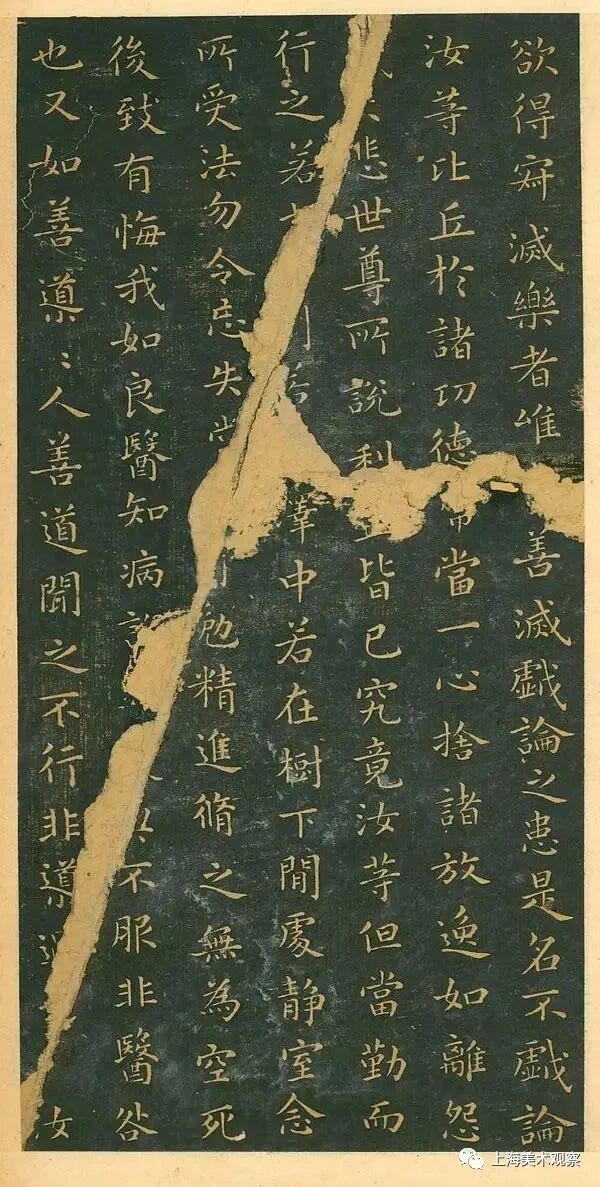 欲得寂滅樂者唯善滅戯論之患是名不戯論
汝等比丘於諸功德當一心捨諸放逸如離怨
悲世尊所說利皆已究竟汝等但當勤而
行之若中若在樹下閒處靜室念
所受法勿令忘失勉精進脩之無為空死
後致有悔我如良醫知病不服非醫咎
也又如善導〻人善道聞之不行非導汝
上海美术观察